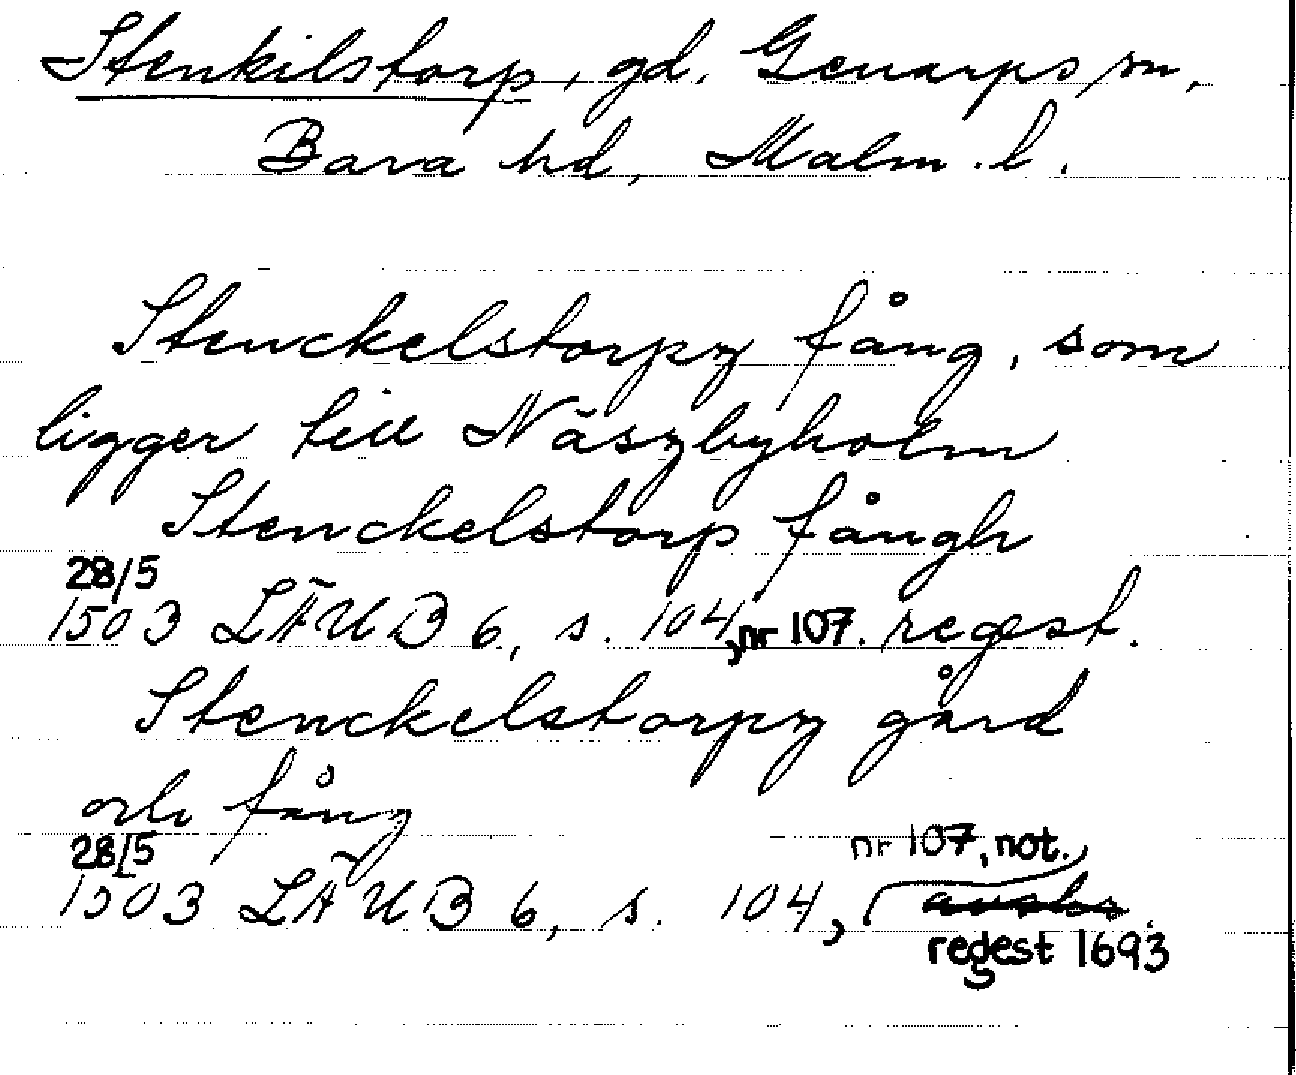 Stenkilstorp, gd, Genarps sn,
Bara hd, Malm. l.
Stenckelstorpz fång, som
ligger till Näszbyholm
Stenckelstorp fångh
28/5
1503 LÄUB 6, s. 104, nr 107. regest.
Stenckelstorpz gård
och fång
28/5
nr 107, not.
1503 LÄUB 6, s. 104,
regest 1693